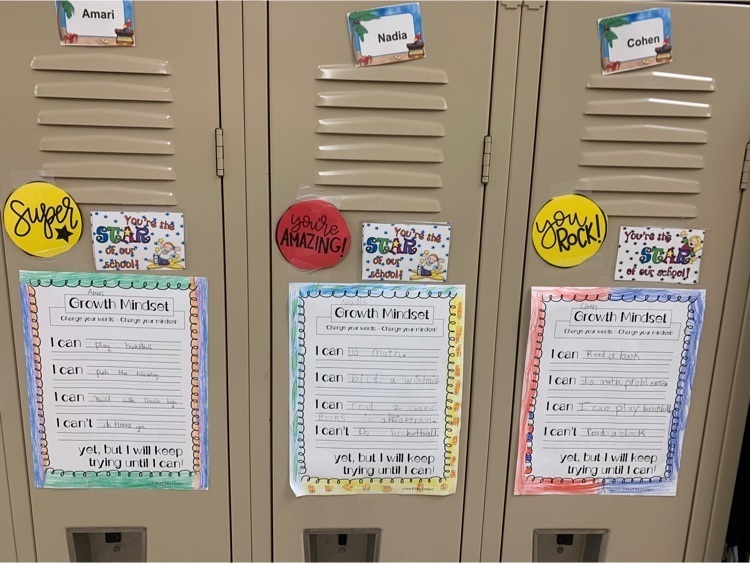 Amari
Super
You're the
STAR
of our
school!
Amari
Growth Mindset
Change your words - Change your mindset!
I can play basketball
I can
I can
I can't do times yet
yet, but I will keep
trying until I can!
Nadia
you're
AMAZING!
You're the
STAR
of our
school!
Growth Mindset
Change your words - Change your mindset!
I can do math.
I can
I can
I can't Do basketball
yet, but I will keep
trying until I can!
Cohen
you
ROCK!
You're the
STAR
of our school!
Growth Mindset
Change your words - Change your mindset!
I can Read a book
I can do math problems
I can I can play baseball
I can't read a clock
yet, but I will keep
trying until I can!